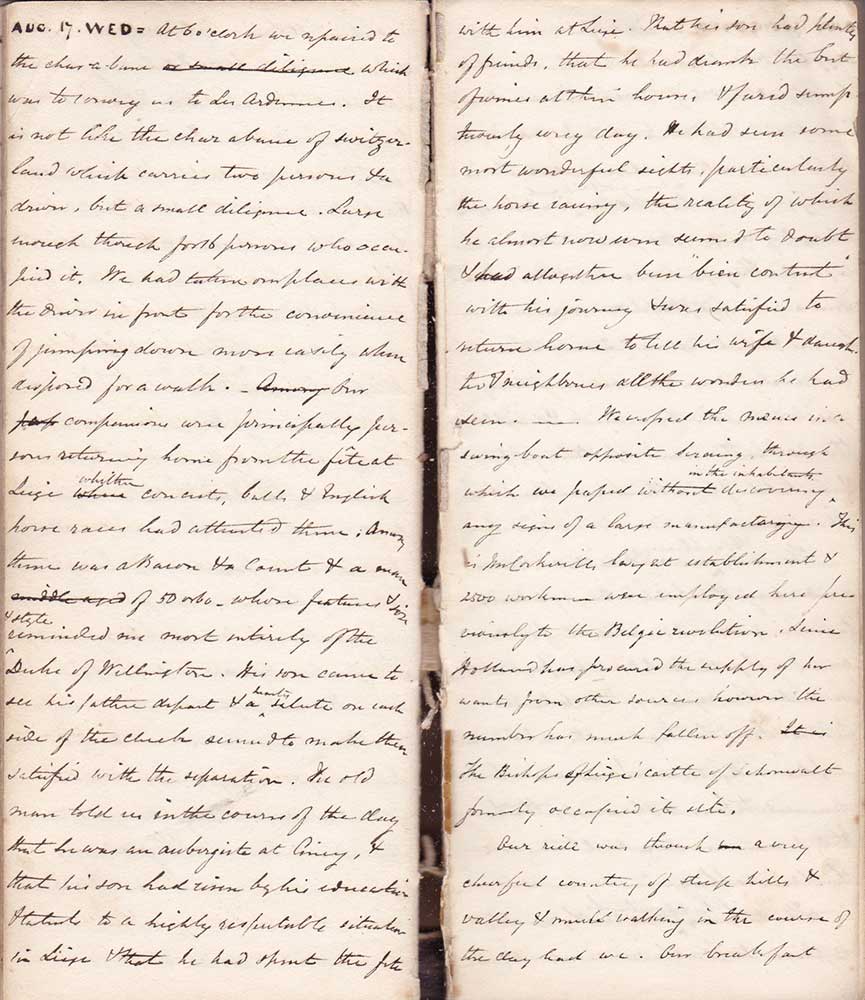 AUG. 17. WED= At 6 o'clock we repaired to
the char a banc or small diligence which
was to convey us to Les Ardennes. It
is not like the char a banc of Switzer-
land which carries two persons & a
driver, but a small diligence. Large
enough though for 16 persons who occu-
pied it. We had taken our places with
the driver in front for the convenience
of jumping down more easily when
disposed for a walk. - Among Our
companions were principally per-
sons returning home from the fête at
whether
Liege where concerts, balls & English
horse races had attracted them; Among
them was a Baron & a Count & a man
middle aged of 50 or 60 - whose features & size
& style
reminded me most entirely of the
Duke of Wellington. His son came to
hearty
see his father depart & a salute on each
side of the cheek seemed to make them
satisfied with the separation. The old
man told us in the course of the day
that he was an aubergiste at Ciney, &
that his son had risen by his education
& talents to a highly respectable situation
in Liege & that he had spent the fete
with him at Liege. That his son had plenty
of friends, that he had drank the best
of wines at their houses & fared sump-
tuously every day. He had seen some
most wonderful sights, particularly
the horse racing, the reality of which
he almost now even seemed to doubt
& had altogether been "bien content"
with his journey & was satisfied to
return home to tell his wife & daugh-
ter & neighbours all the wonders he had
seen. — We crossed the Meuse in a
swing boat opposite Seraing, through
in the inhabitants
which we passed without discovering
any signs of a large manufactory. This
is Mr Cockerill's largest establishment &
2500 workmen were employed here pre
viously to the Belgic revolution. Since
Holland has procured the supply of her
wants from other sources however the
number has much fallen off. It is
The Bishops of Liege's castle of Schonwalt
formerly occupied its site.
Our ride was through a very
cheerful country of steep hills &
valley & much walking in the course of
the day had we. Our breakfast